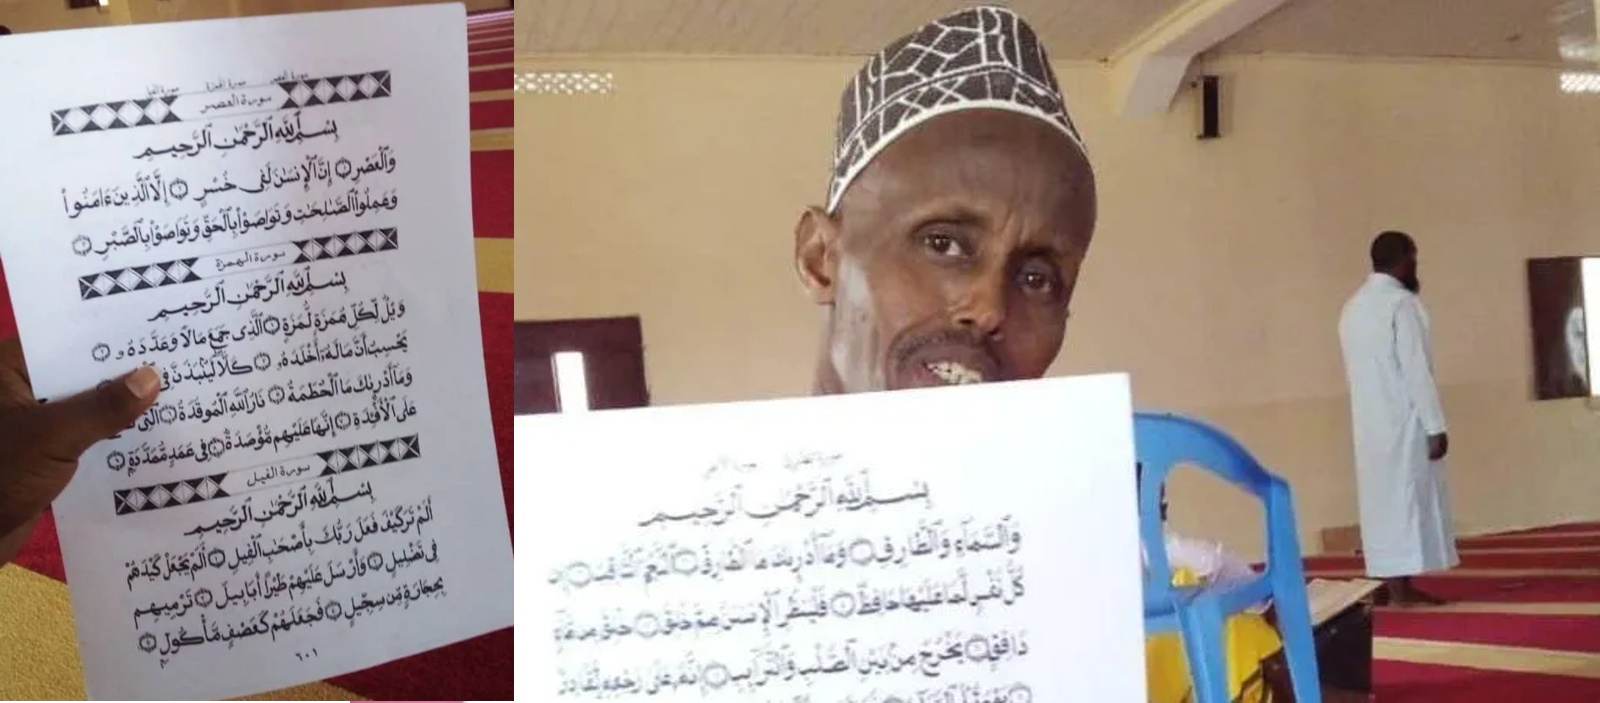 سورة العصر سورة الهمزة سورة الفيل
سورة العصر
بِسْمِ ٱللَّهِ ٱلرَّحْمَٰنِ ٱلرَّحِيمِ
وَٱلْعَصْرِ ١ إِنَّ ٱلْإِنسَٰنَ لَفِى خُسْرٍ ٢ إِلَّا ٱلَّذِينَ ءَامَنُوا۟
وَعَمِلُوا۟ ٱلصَّٰلِحَٰتِ وَتَوَاصَوْا۟ بِٱلْحَقِّ وَتَوَاصَوْا۟ بِٱلصَّبْرِ ٣
سورة الهمزة
بِسْمِ ٱللَّهِ ٱلرَّحْمَٰنِ ٱلرَّحِيمِ
وَيْلٌ لِّكُلِّ هُمَزَةٍ لُّمَزَةٍ ١ ٱلَّذِى جَمَعَ مَالًا وَعَدَّدَهُۥ ٢
يَحْسَبُ أَنَّ مَالَهُۥٓ أَخْلَدَهُۥ ٣ كَلَّا لَيُنۢبَذَنَّ فِى
وَمَآ أَدْرَىٰكَ مَا ٱلْحُطَمَةُ ٥ نَارُ ٱللَّهِ ٱلْمُوقَدَةُ ٦ ٱلَّتِى
عَلَى ٱلْأَفْـِٔدَةِ ٧ إِنَّهَا عَلَيْهِم مُّؤْصَدَةٌ ٨ فِى عَمَدٍ مُّمَدَّدَةٍۭ ٩
سورة الفيل
بِسْمِ ٱللَّهِ ٱلرَّحْمَٰنِ ٱلرَّحِيمِ
أَلَمْ تَرَ كَيْفَ فَعَلَ رَبُّكَ بِأَصْحَٰبِ ٱلْفِيلِ ١ أَلَمْ يَجْعَلْ كَيْدَهُمْ
فِى تَضْلِيلٍ ٢ وَأَرْسَلَ عَلَيْهِمْ طَيْرًا أَبَابِيلَ ٣ تَرْمِيهِم
بِحِجَارَةٍ مِّن سِجِّيلٍ ٤ فَجَعَلَهُمْ كَعَصْفٍ مَّأْكُولٍۭ ٥
٦٠١
بِسْمِ ٱللَّهِ ٱلرَّحْمَٰنِ ٱلرَّحِيمِ
وَٱلسَّمَآءِ وَٱلطَّارِقِ ١ وَمَآ أَدْرَىٰكَ مَا ٱلطَّارِقُ ٢ ٱلنَّجْمُ ٱلثَّاقِبُ ٣ إِن
كُلُّ نَفْسٍ لَّمَّا عَلَيْهَا حَافِظٌ ٤ فَلْيَنظُرِ ٱلْإِنسَٰنُ مِمَّ خُلِقَ ٥ خُلِقَ مِن مَّآءٍ
دَافِقٍ ٦ يَخْرُجُ مِنۢ بَيْنِ ٱلصُّلْبِ وَٱلتَّرَآئِبِ ٧ إِنَّهُۥ عَلَىٰ رَجْعِهِۦ لَقَادِرٌ